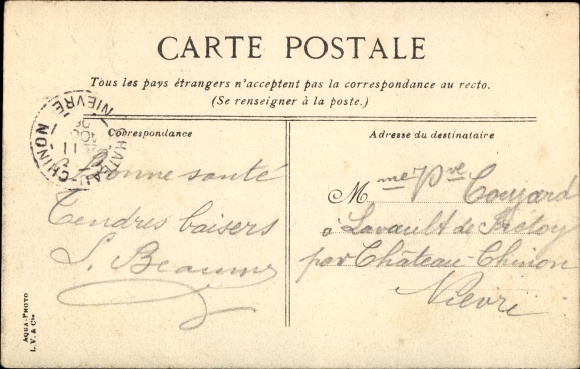 CARTE POSTALE
Tous les pays étrangers n'acceptent pas la correspondance au recto.
(Se renseigner à la poste.)
Correspondance
Adresse du destinataire
CHATEAU-CHINON
NIEVRE
11
Bonne santé
Tendres baisers
M me Vve Coujard
à Lavault de Frétoy
par Château-Chinon
Nièvre
AQUA-PHOTO
L. V. & Cie